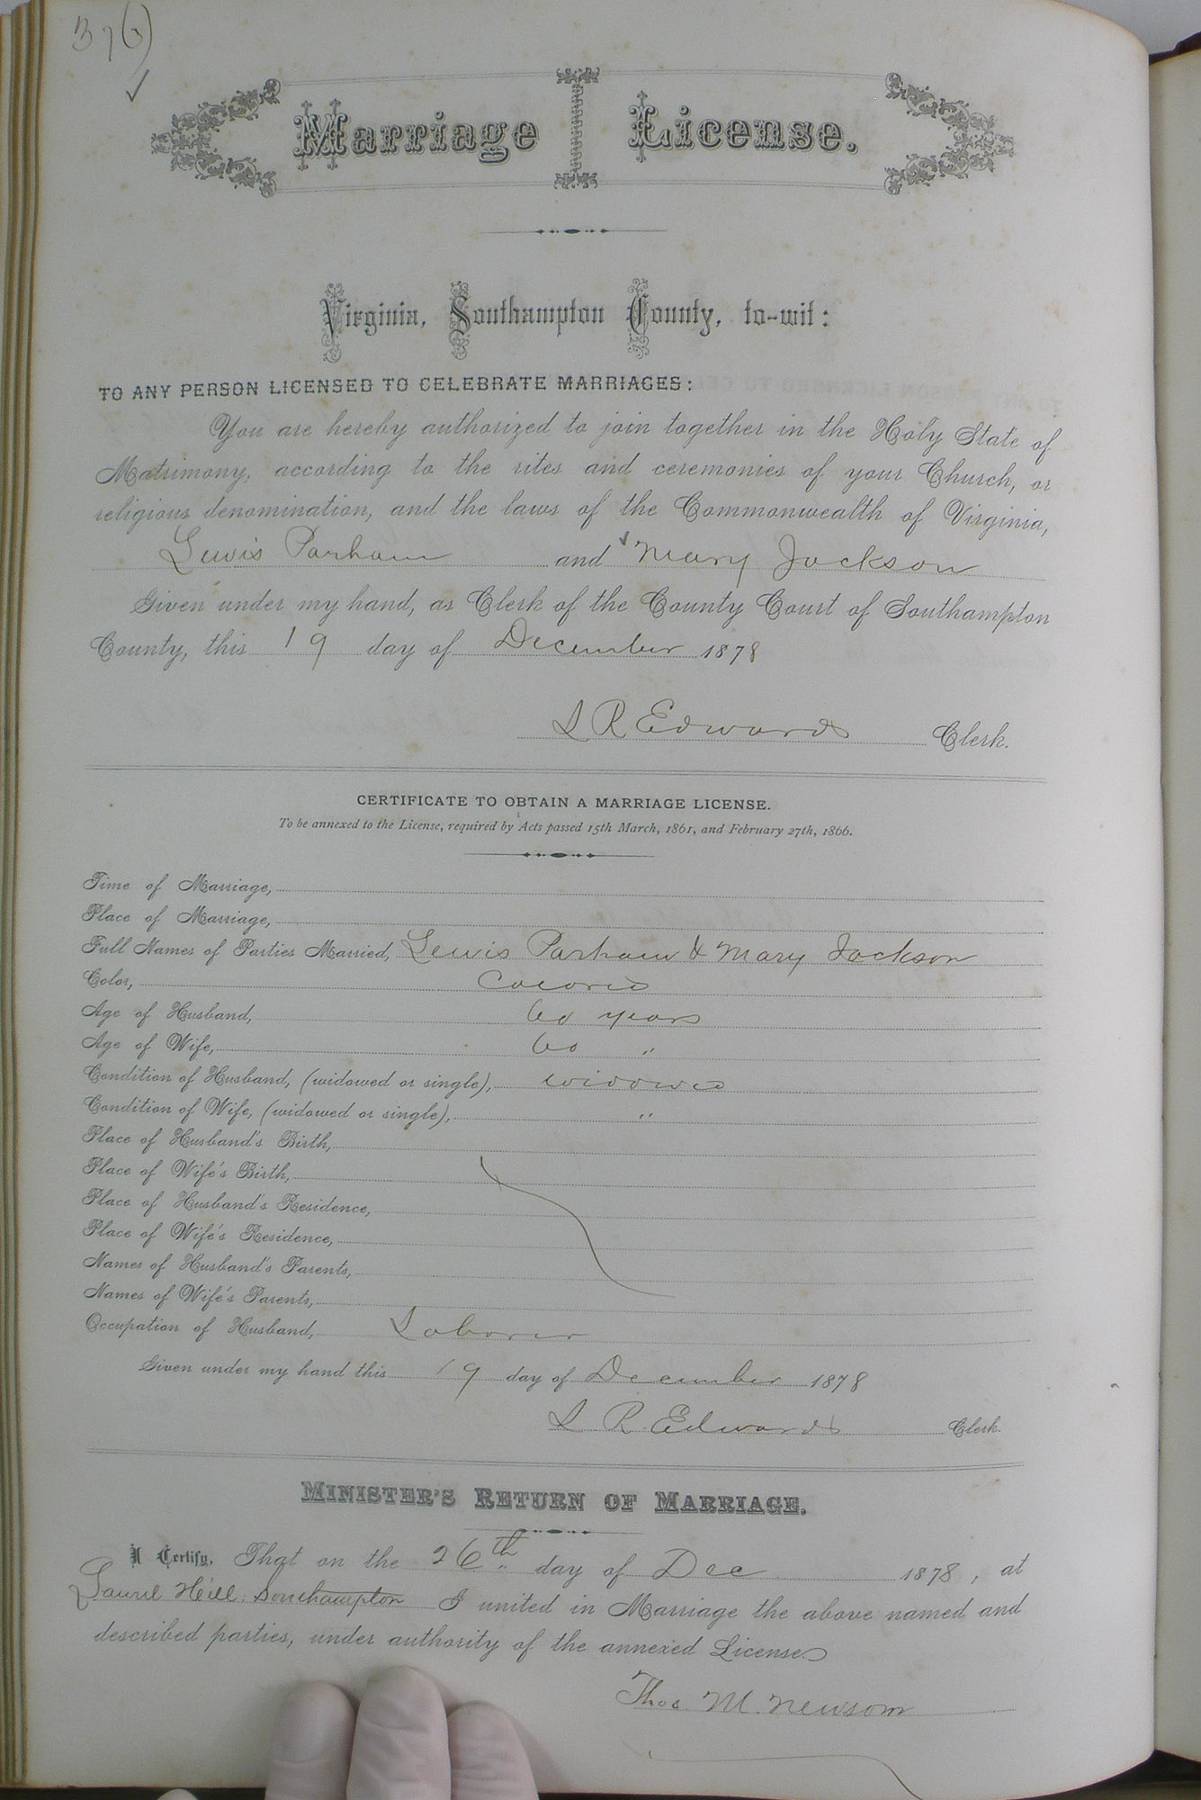 376
Marriage License.
Virginia, Southampton County, to-wit:
TO ANY PERSON LICENSED TO CELEBRATE MARRIAGES:
You are hereby authorized to join together in the Holy State of
Matrimony, according to the rites and ceremonies of your Church, or
religious denomination, and the laws of the Commonwealth of Virginia,
Lewis Parham and Mary Jackson
Given under my hand, as Clerk of the County Court of Southampton
County, this 19 day of December 1878
L R Edwards Clerk.
CERTIFICATE TO OBTAIN A MARRIAGE LICENSE.
To be annexed to the License, required by Acts passed 15th March, 1861, and February 27th, 1866.
Time of Marriage,
Place of Marriage,
Full Names of Parties Married, Lewis Parham & Mary Jackson
Color, Colored
Age of Husband, 60 years
Age of Wife, 60 "
Condition of Husband, (widowed or single), widowed
Condition of Wife, (widowed or single), "
Place of Husband's Birth,
Place of Wife's Birth,
Place of Husband's Residence,
Place of Wife's Residence,
Names of Husband's Parents,
Names of Wife's Parents,
Occupation of Husband, Laborer
Given under my hand this 19 day of December 1878
L R. Edwards Clerk.
MINISTER'S RETURN OF MARRIAGE.
I Certify, That on the 26th day of Dec 1878, at
Laurel Hill. Southampton I united in Marriage the above named and
described parties, under authority of the annexed License.
Thos. M. Newsom